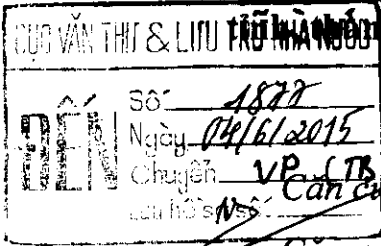 CỤC VĂN THƯ & LƯU TRỮ NHÀ NƯỚC
ĐẾN
Số: 1877
Ngày 04/6/2015
Chuyển VP (TB
Căn cứ
Lưu hồ sơ số